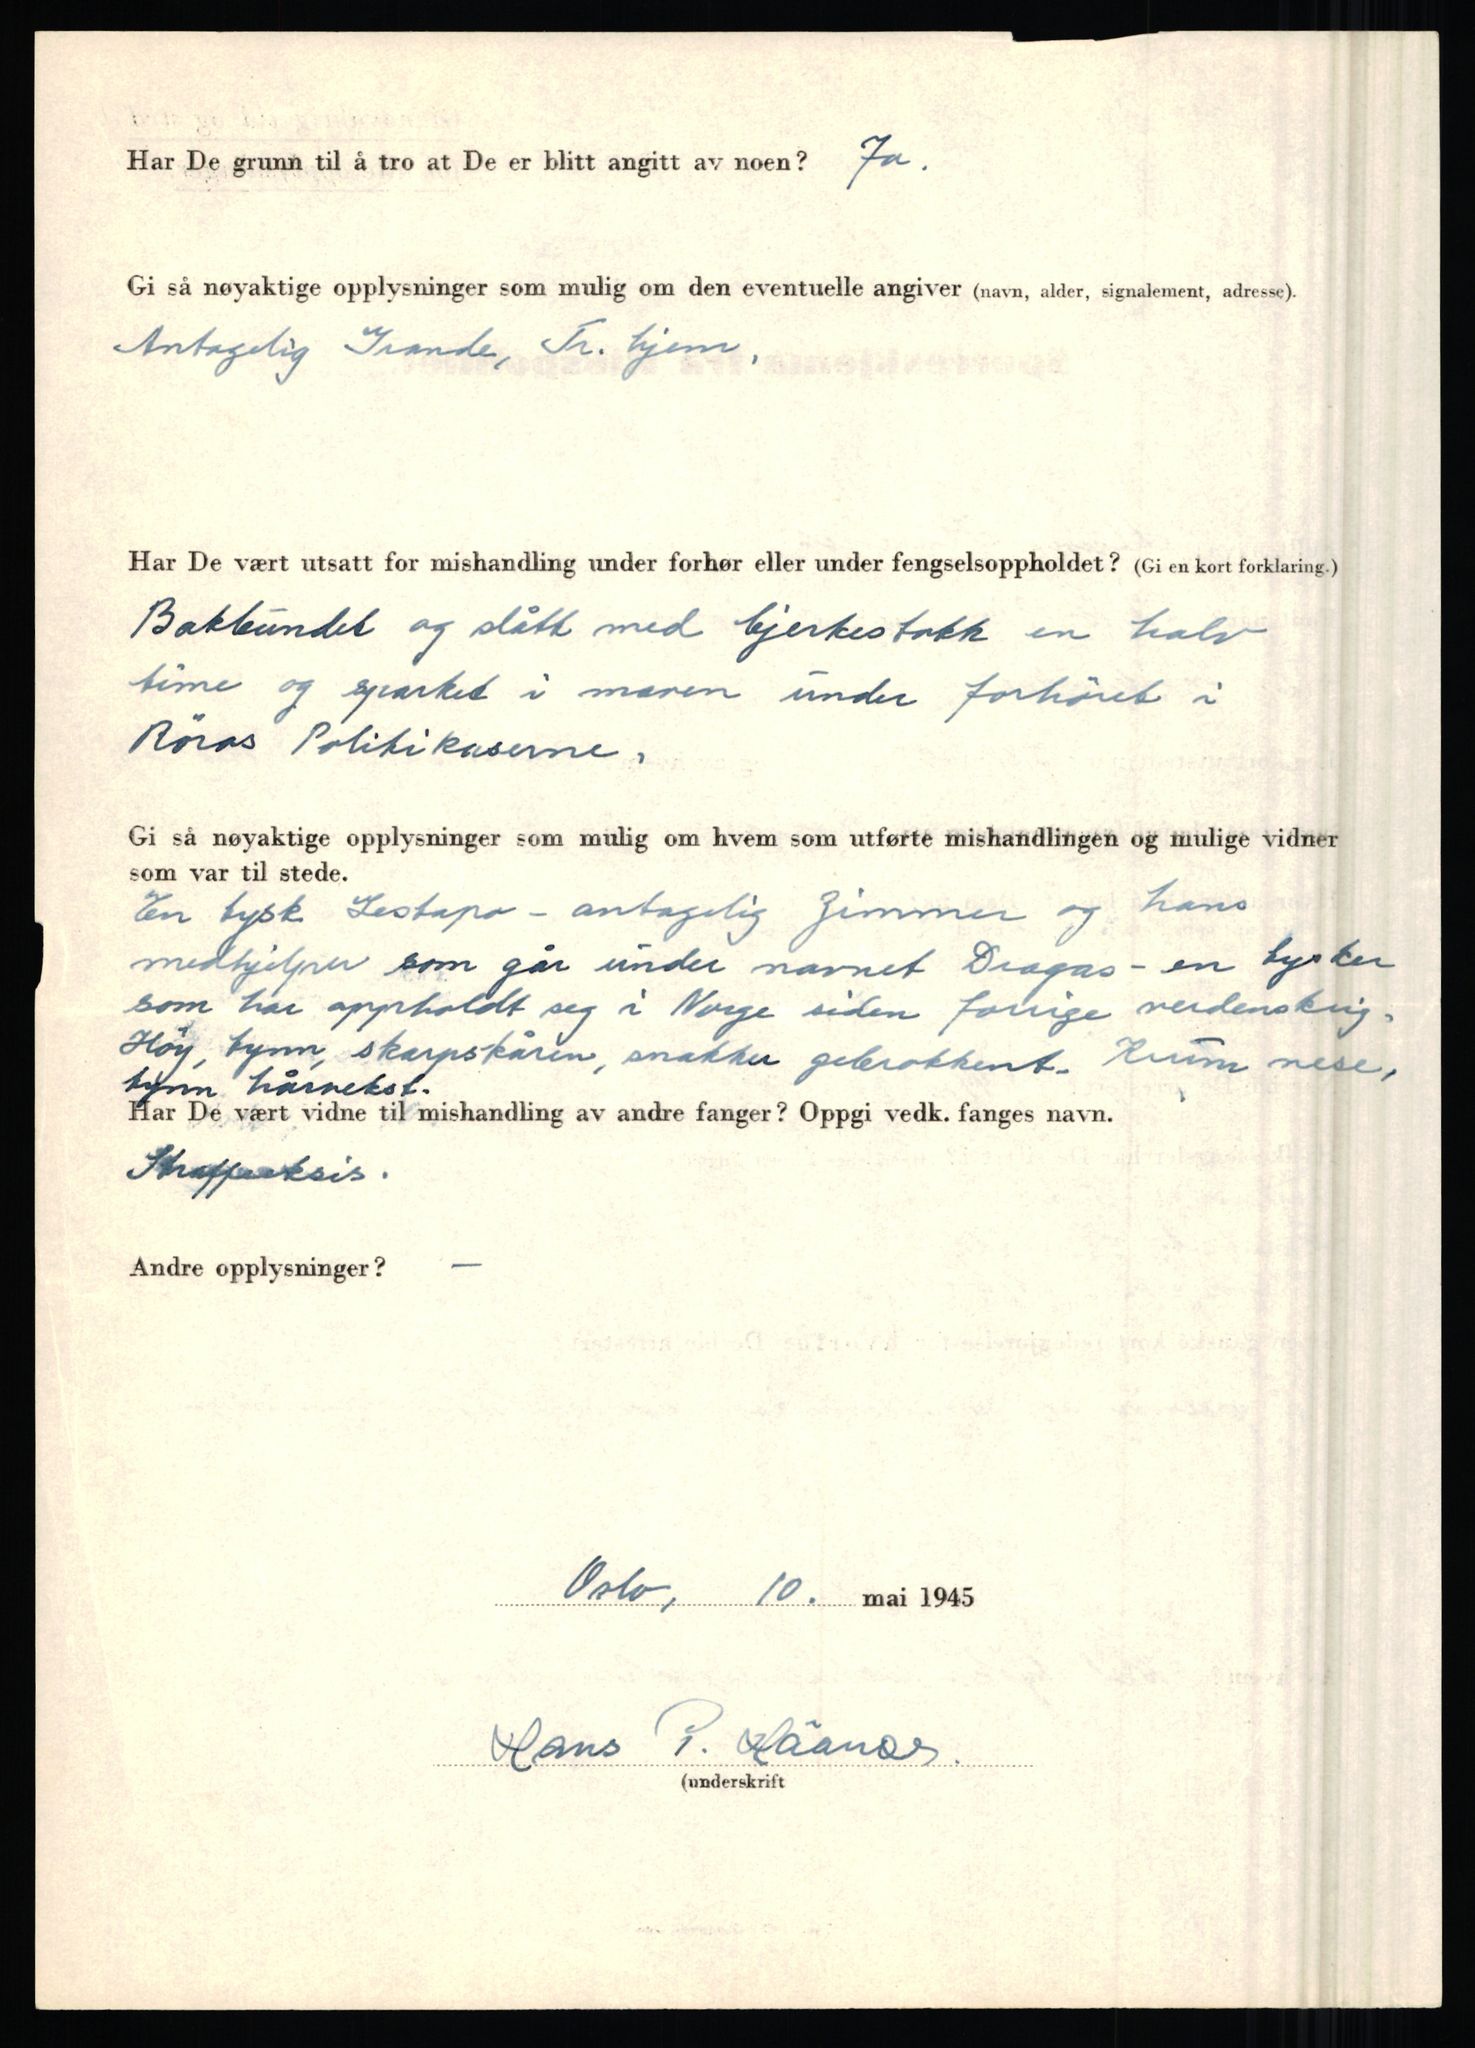 Har De grunn til å tro at De er blitt angitt av noen? Ja.
Gi så nøyaktige opplysninger som mulig om den eventuelle angiver (navn, alder, signalement, adresse).
Antagelig Grande, Tr.hjem.
Har De vært utsatt for mishandling under forhør eller under fengselsoppholdet? (Gi en kort forklaring.)
Bakbundet og slått med bjerkestokk en halv
time og sparket i maven under forhöret i
Röros Politikaserne.
Gi så nøyaktige opplysninger som mulig om hvem som utførte mishandlingen og mulige vidner
som var til stede.
En tysk Gestapo - antagelig Zimmer og hans
medhjelper som går under navnet Dragas - en tysker
som har oppholdt seg i Norge siden forrige verdenskrig.
Höy, tynn, skarpskåren, snakker gebrokkent. Krum nese,
tynn hårvekst.
Har De vært vidne til mishandling av andre fanger? Oppgi vedk. fanges navn.
Straffeeksis.
Andre opplysninger? —
Oslo, 10. mai 1945
Hans P.
(underskrift